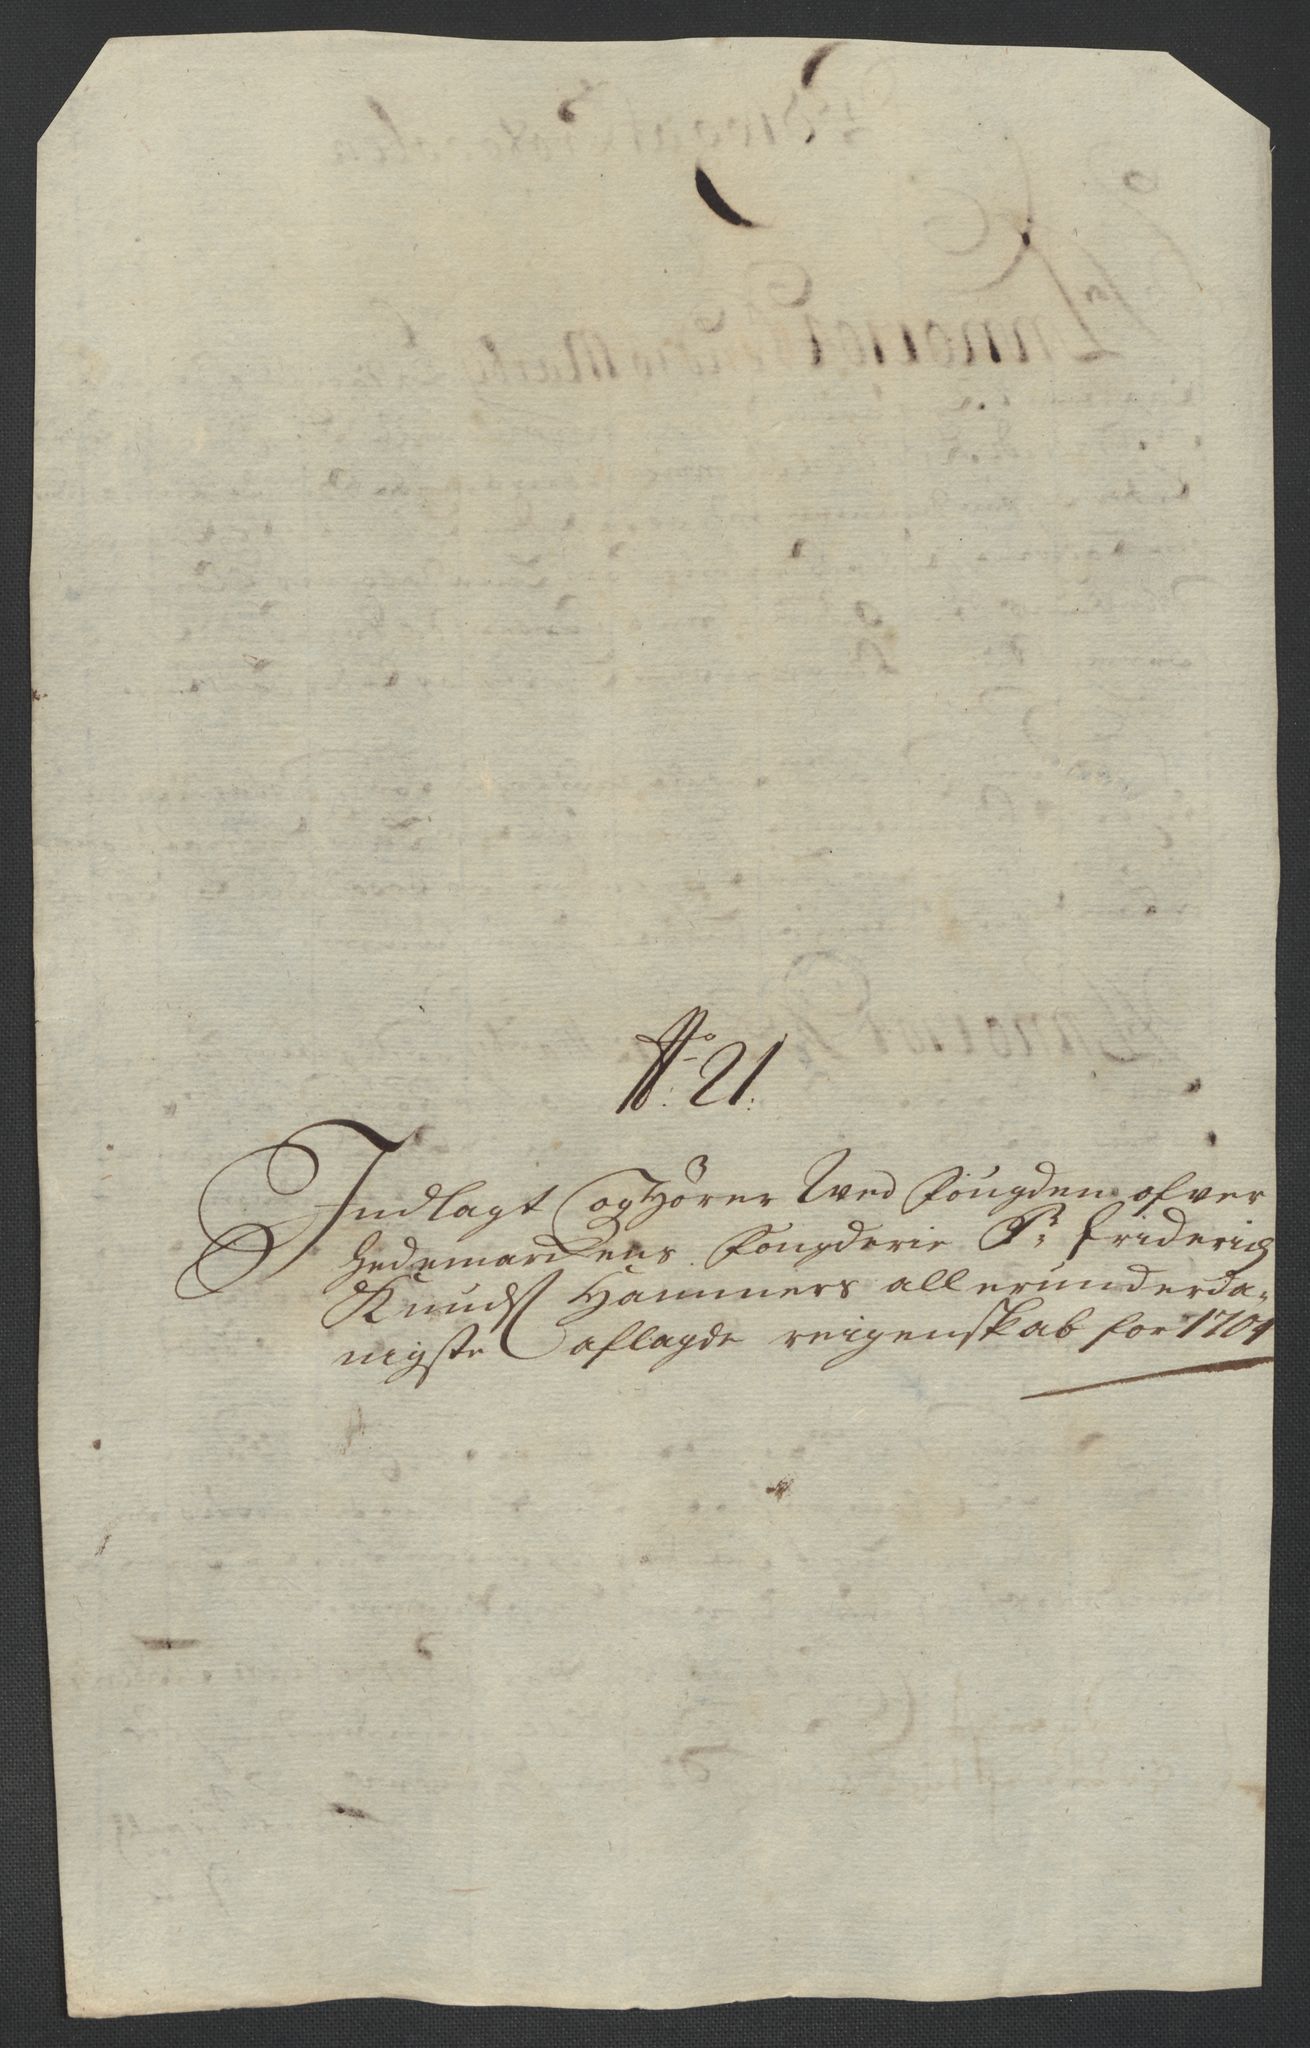 No: 21:
Indlagt og Hörer Wed fougden ofver
Hedemarckens fougderie Sr: friderich
Knuds Hammers allerunderda-
nigste aflagde reigenskab for 1704